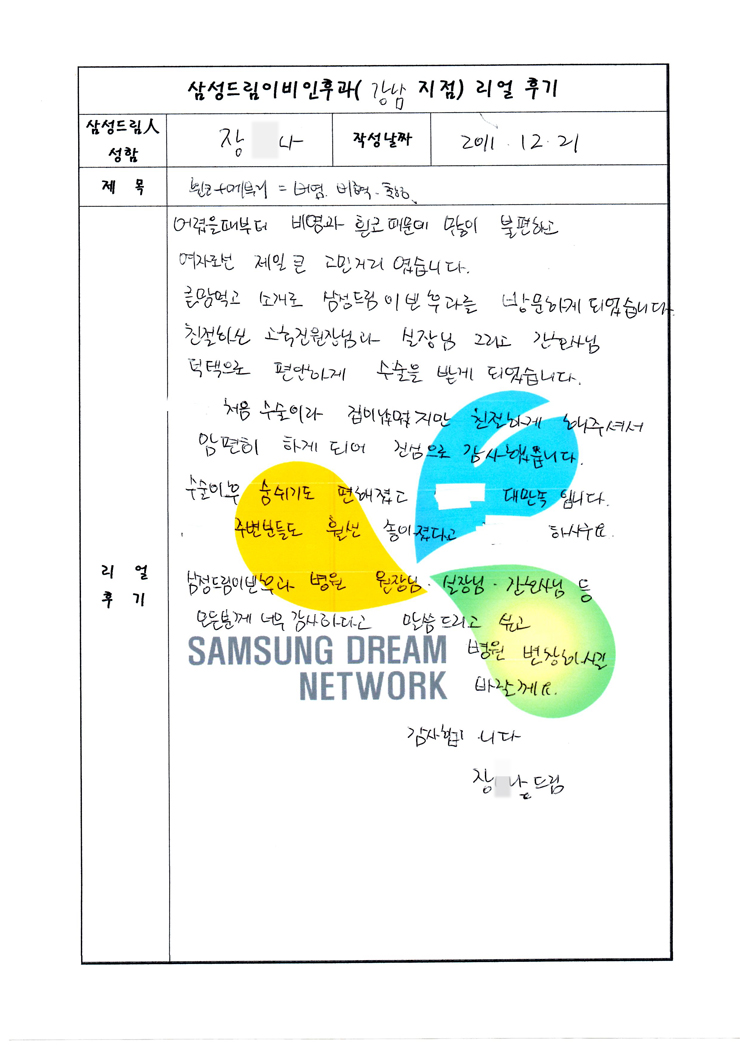 삼성드림이비인후과( 강남 지점) 리얼 후기
삼성드림人 성함
장 나
작성날짜
2011. 12. 21
제 목
휜코+메부리 = 비염. 비혁.
어렸을때부터 비염과 휜코 때문에 많이 불편하고
여자로선 제일 큰 고민거리 였습니다.
큰맘먹고 소개로 삼성드림이빈후과를 방문하게 되었습니다
친절하신 원장님과 실장님 그리고 간호사님
덕택으로 편안하게 수술을 받게 되었습니다.
처음 수술이라 겁이났었지만 친절하게 해주셔서
맘편히 하게 되어 진심으로 감사했습니다.
수술이후 숨쉬기도 편해졌고 대만족 입니다.
주변분들도 훨신 좋아졌다고 하시구요.
리 얼 후 기
삼성드림이빈후과 병원 원장님. 실장님. 간호사님 등
모든분께 너무 감사하다고 말씀드리고 싶고
SAMSUNG DREAM NETWORK
병원 번창하시길
바랄께요.
감사합니다
장 나 드림